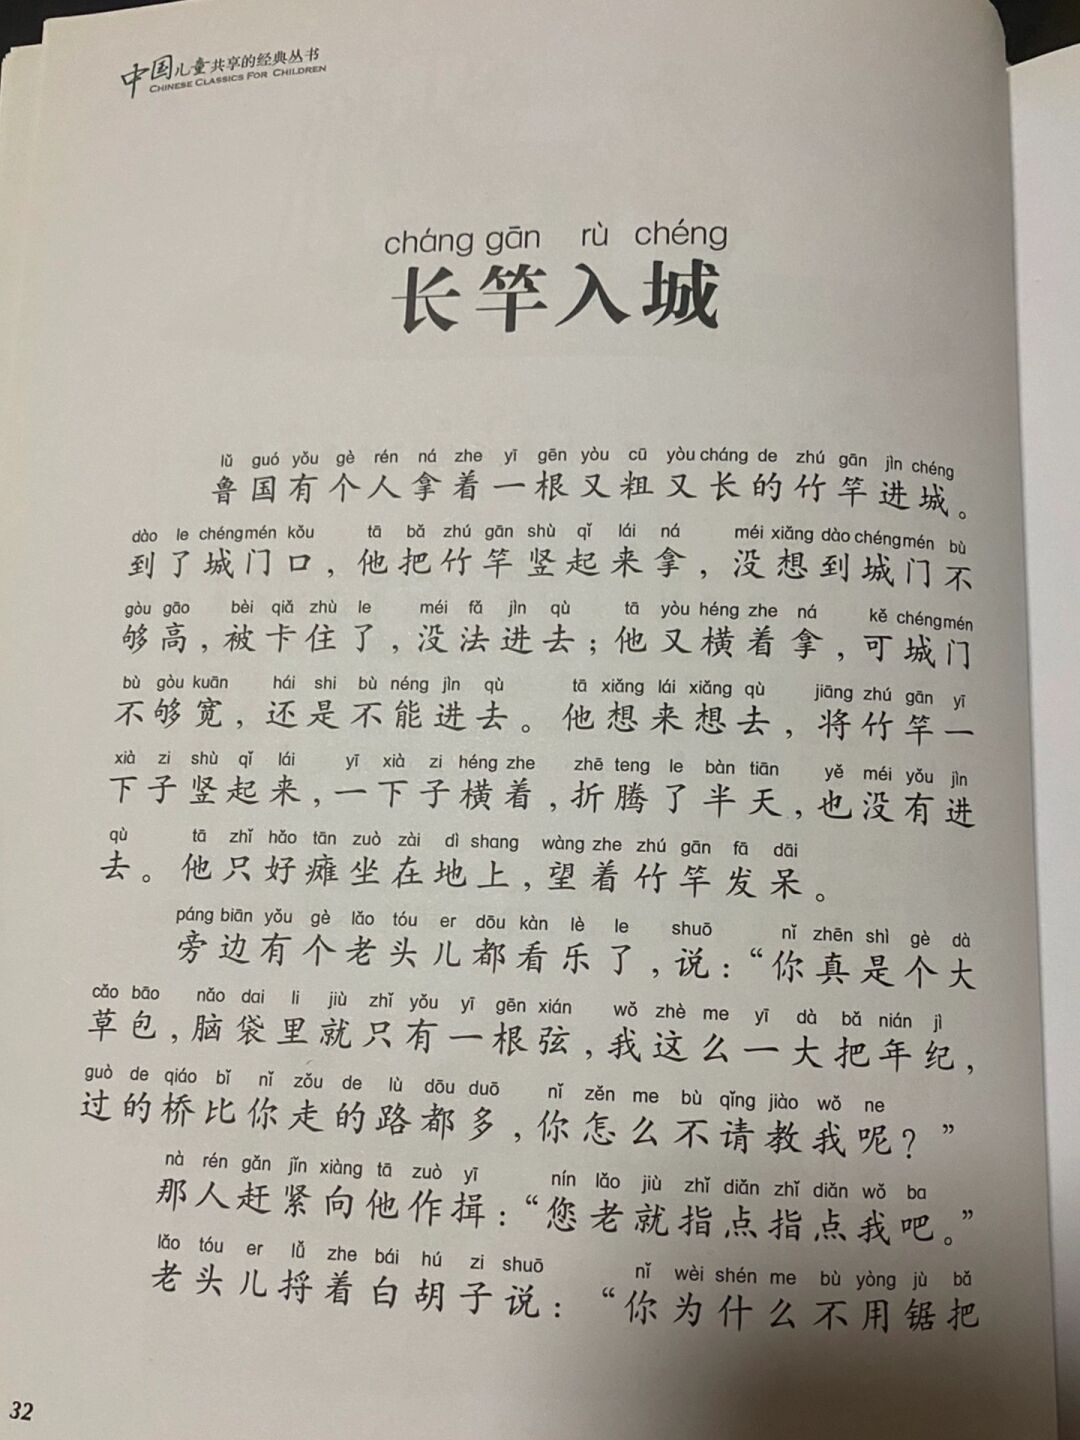 中国儿童共享的经典丛书
CHINESE CLASSICS FOR CHILDREN
cháng gān rù chéng
长竿入城
lǔ guó yǒu gè rén ná zhe yī gēn yòu cū yòu cháng de zhú gān jìn chéng
鲁国有个人拿着一根又粗又长的竹竿进城。
dào le chéngmén kǒu tā bǎ zhú gān shù qǐ lái ná méi xiǎng dào chéngmén bù
到了城门口，他把竹竿竖起来拿，没想到城门不
gòu gāo bèi qiǎ zhù le méi fǎ jìn qù tā yòu héng zhe ná kě chéngmén
够高，被卡住了，没法进去；他又横着拿，可城门
bù gòu kuān hái shi bù néng jìn qù tā xiǎng lái xiǎng qù jiāng zhú gān yī
不够宽，还是不能进去。他想来想去，将竹竿一
xià zi shù qǐ lái yī xià zi héng zhe zhē teng le bàn tiān yě méi yǒu jìn
下子竖起来，一下子横着，折腾了半天，也没有进
qù tā zhǐ hǎo tān zuò zài dì shang wàng zhe zhú gān fā dāi
去。他只好瘫坐在地上，望着竹竿发呆。
páng biān yǒu gè lǎo tóu er dōu kàn lè le shuō nǐ zhēn shì gè dà
旁边有个老头儿都看乐了，说：“你真是个大
cǎo bāo nǎo dai li jiù zhǐ yǒu yī gēn xián wǒ zhè me yī dà bǎ nián jì
草包，脑袋里就只有一根弦，我这么一大把年纪，
guò de qiáo bǐ nǐ zǒu de lù dōu duō nǐ zěn me bù qǐng jiào wǒ ne
过的桥比你走的路都多，你怎么不请教我呢？”
nà rén gǎn jǐn xiàng tā zuò yī nín lǎo jiù zhǐ diǎn zhǐ diǎn wǒ ba
那人赶紧向他作揖：“您老就指点指点我吧。”
lǎo tóu er lǚ zhe bái hú zi shuō nǐ wèi shén me bù yòng jù bǎ
老头儿捋着白胡子说：“你为什么不用锯把
32